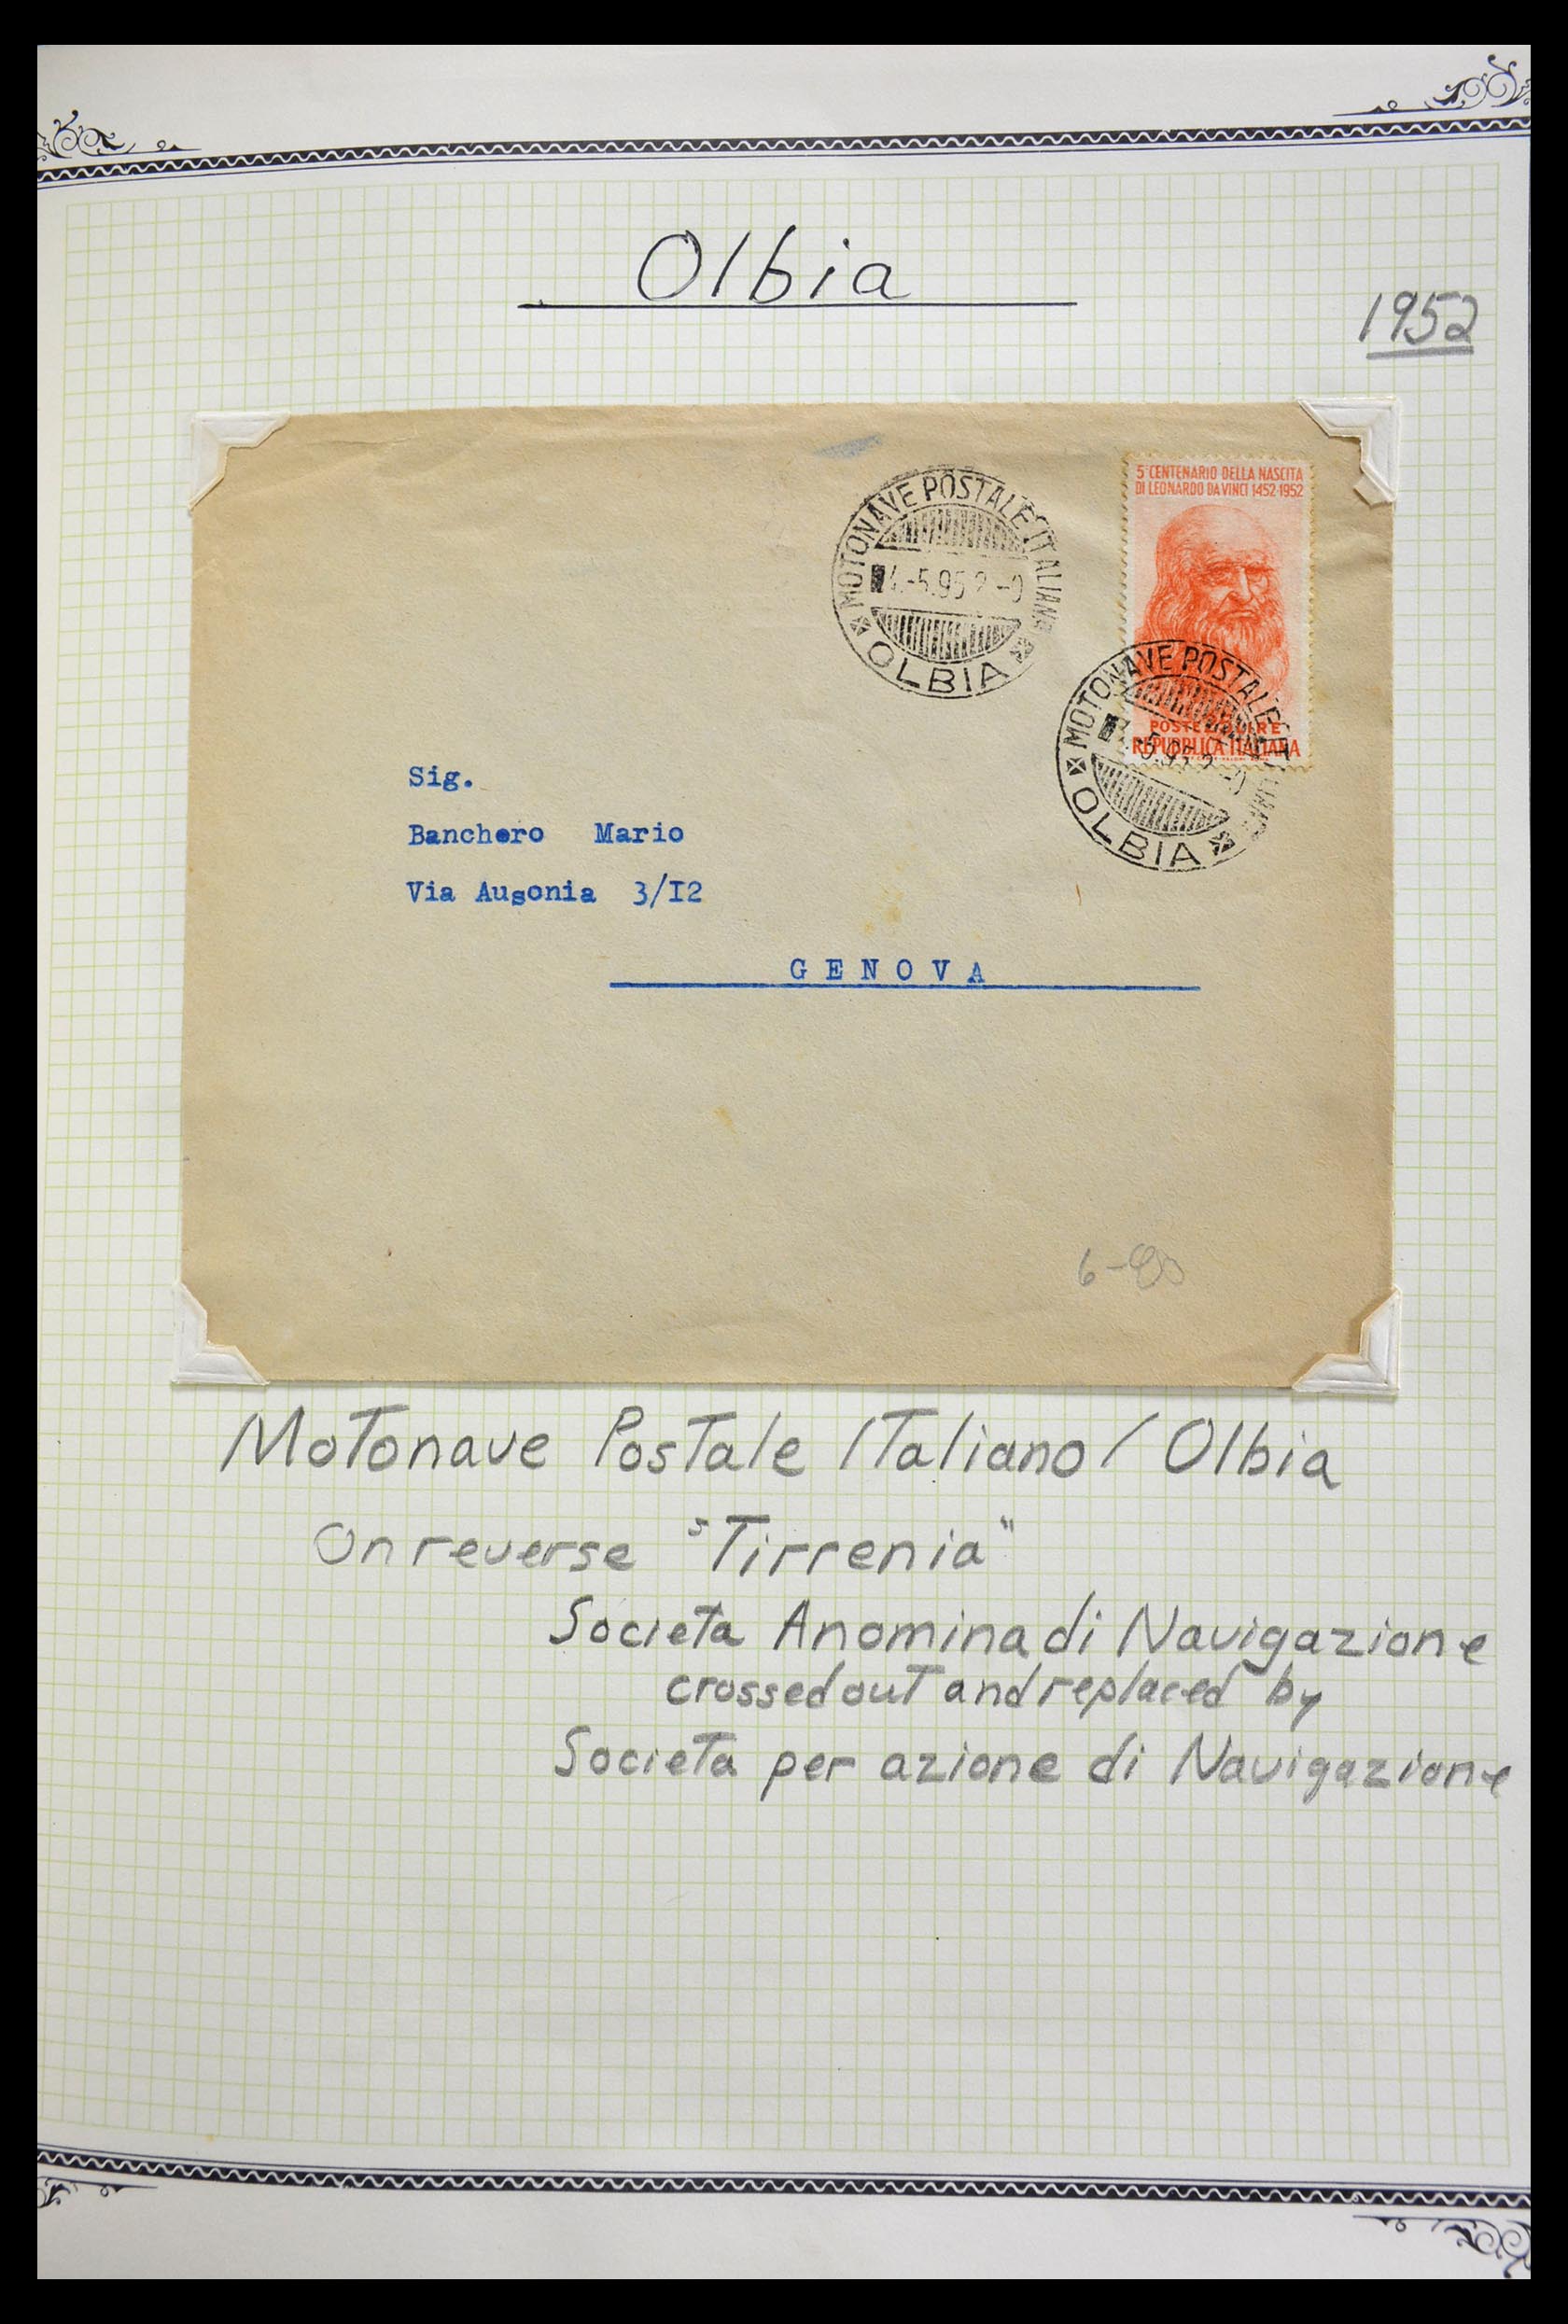 Olbia
1952
5° CENTENARIO DELLA NASCITA
DI LEONARDO DA VINCI 1452-1952
MOTONAVE POSTALE ITALIANO
4.-5.952-0
OLBIA
POSTE LIRE
REPUBBLICA ITALIANA
MOTONAVE POSTALE
OLBIA
Sig.
Banchero Mario
Via Ausonia 3/I2
GENOVA
Motonave Postale Italiano / Olbia
On reverse "Tirrenia"
Societa Anomina di Navigazione
crossed out and replaced by
Societa per azione di Navigazione